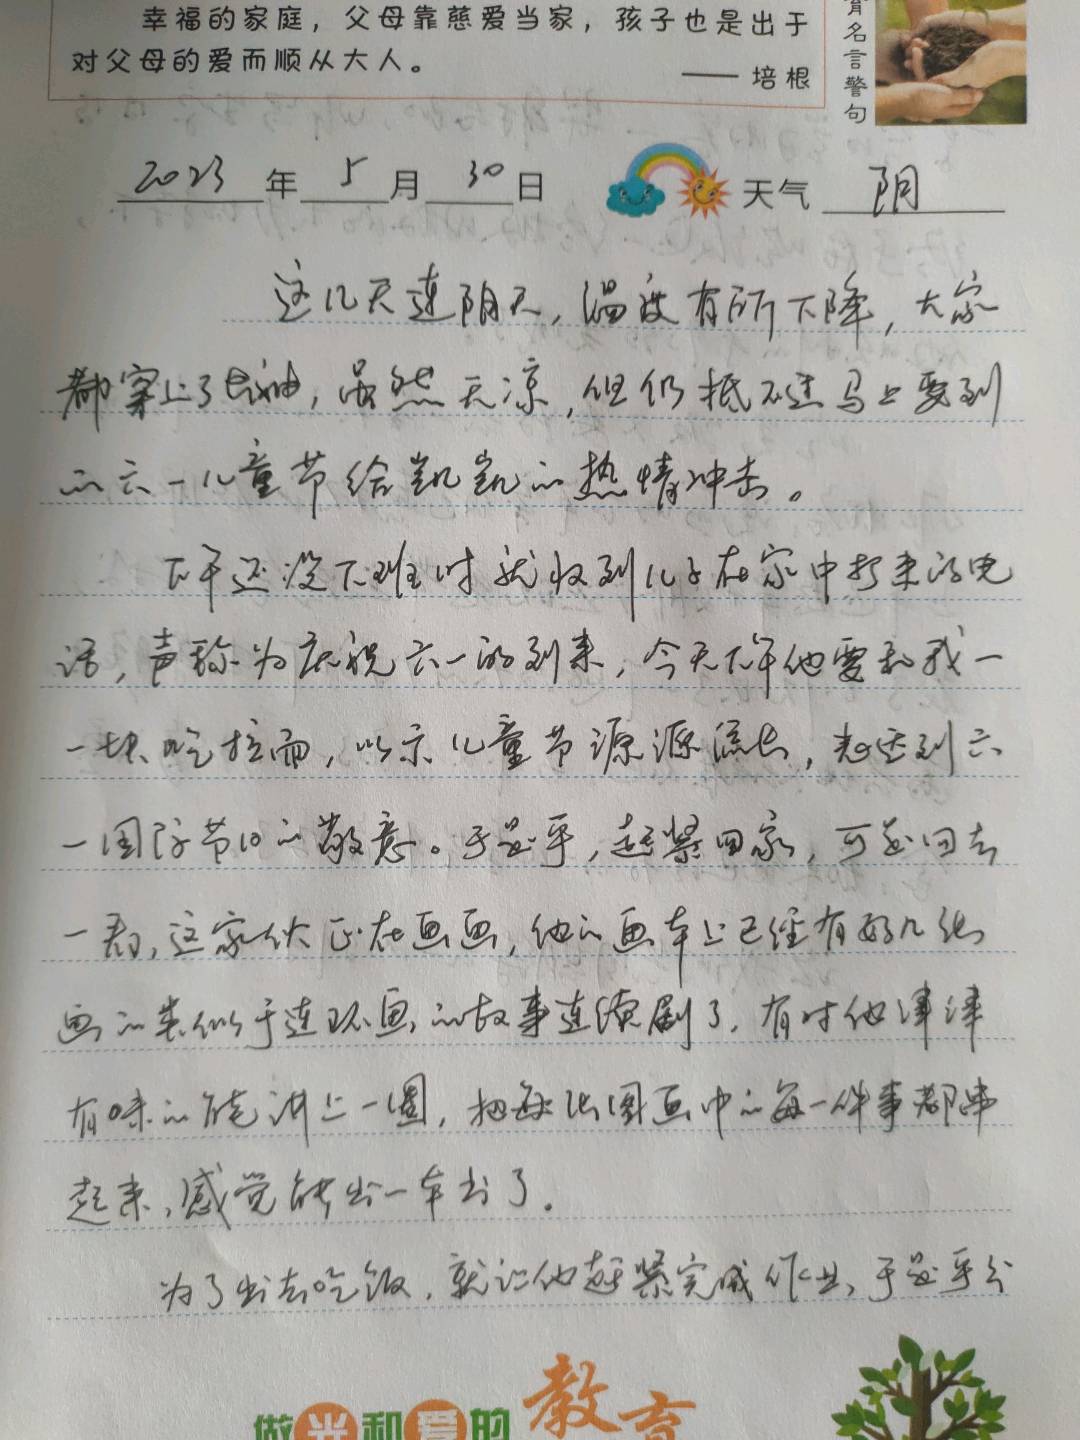 幸福的家庭，父母靠慈爱当家，孩子也是出于
对父母的爱而顺从大人。
—— 培根
育名言警句
2023年5月30日 天气 阴
这几天连阴天，温度有所下降，大家
都穿上了长袖，虽然天凉，但仍抵不过马上要到
的六一儿童节给凯凯的热情冲击。
下午还没下班时就收到儿子在家中打来的电
话，声称为庆祝六一的到来，今天下午他要和我一
一块吃拉面，以示儿童节源源流长，表达到六
一国际节日的敬意。于是乎，赶紧回家，可是回去
一看，这家伙正在画画，他的画本上已经有好几张
画的类似于连环画的故事连续剧了，有时他津津
有味的能讲上一圈，把每张图画中的每一件事都串
起来，感觉能出一本书了。
为了出去吃饭，就让他赶紧完成作业，于是乎
做光和爱的教育